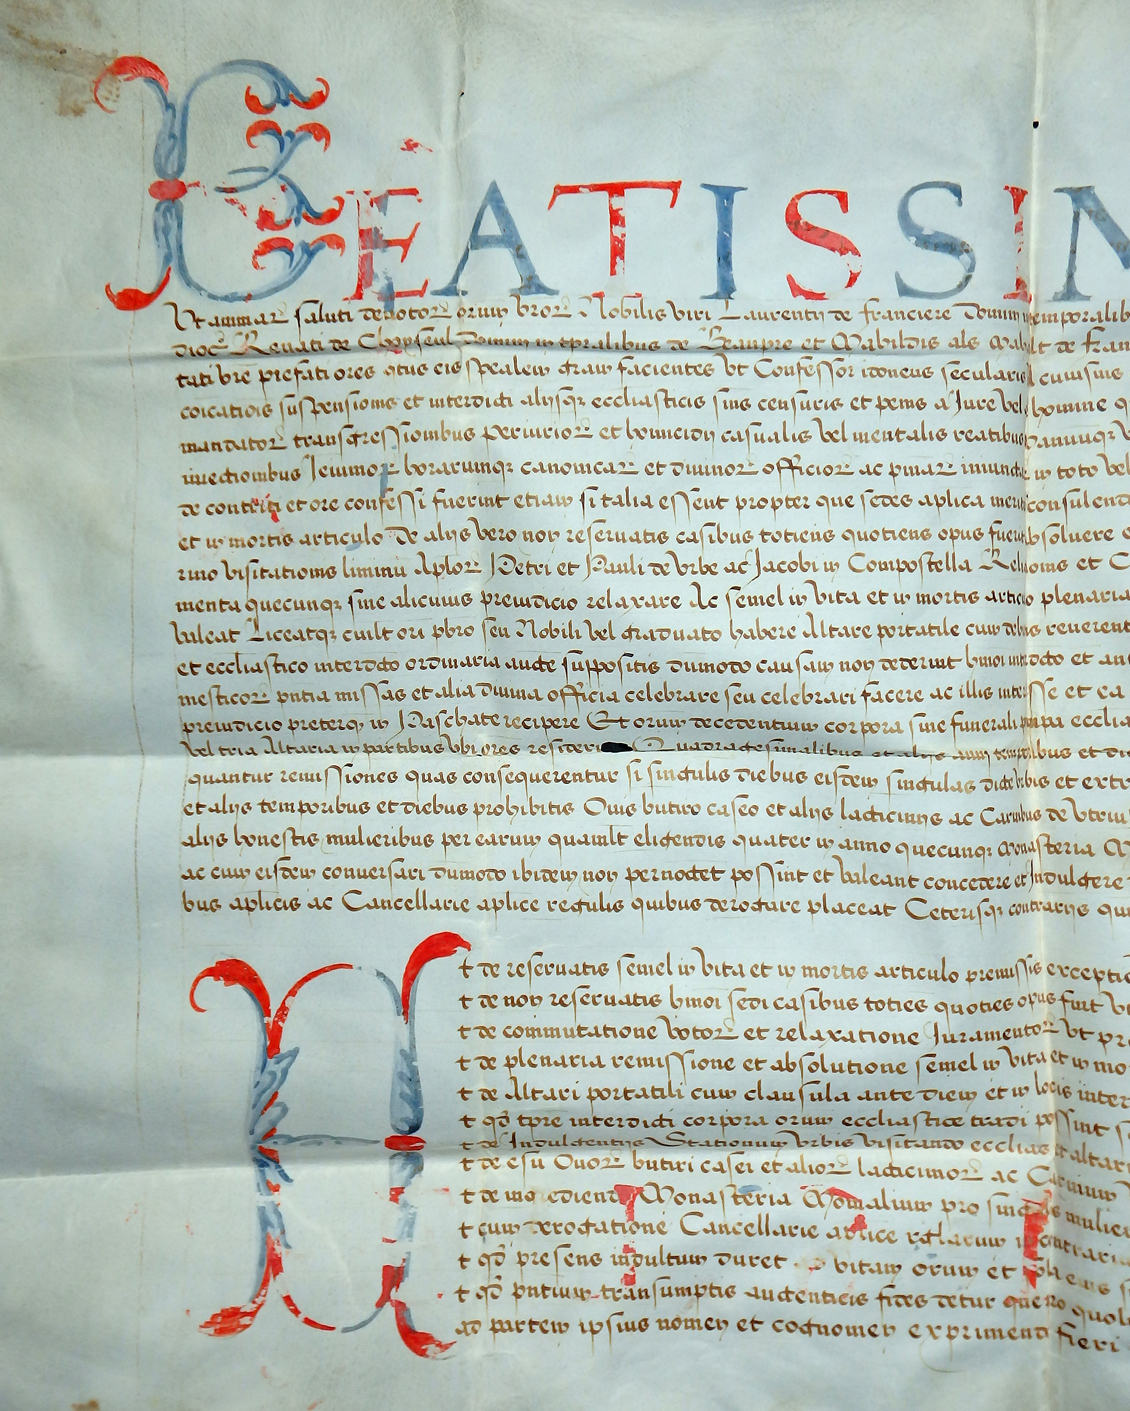 BEATISSIM
Ut animar saluti devotor orum vror Nobilis viri Laurentii de franciere Domini temporalib
dioc Renati de Choyseul Domini in tpralibus de Beaupre et Mabildis als Mab lt de fran
tati vre prefati ores qtus eis spealem gram facientes ut Confessor idoneus secularis l cuiusuis
coicatiois suspensionis et interdicti aliisq eccliasticis snis censuris et penis a Jure vel homine q
mandator transgressionibus Periurior et homicidii casualis vel mentalis reatibus manuuq v
iniectionibus Ieiunior horarumq canonicar et diuinor officior ac pniar iniunctar in toto vel
de contriti et ore confessi fuerint etiam si talia essent propter que sedes aplica merito consulend
et in mortis articulo De aliis vero non reservatis casibus totiens quotiens opus fuerit absoluere e
rino visitationis liminu Aplor Petri et Pauli de Urbe ac Jacobi in Compostella Relionis et C
menta quecunq sine alicuius preiudicio relaxare Ac semel in vita et in mortis articulo plenaria
valeat Liceatq cuilt ori pbro seu Nobili vel graduato habere Altare portatile cum debitis reverent
et eccliastico interdcto ordinaria aucte suppositis dumodo causam non dederint hmoi interdcto et an
mesticor pntia missas et alia diuina officia celebrare seu celebrari facere ac illis interesse et ea
preiudicio preterq in Paschate recipere Et orum decedentium corpora sine funerali pompa ecclia
vel tria Altaria in partibus ubi ores resideri Quadragesimalibus et aliis anni temporibus et di
quantur remissiones quas consequerentur si singulis diebus eisdem singulas dicte Urbis et extr
et aliis temporibus et diebus prohibitis Ouis butiro caseo et aliis lacticiniis ac Carnibus de utriu
aliis honestis mulieribus per earum quamlt eligendis quater in anno quecunq Monasteria M
ac cum eisdem conversari dumodo ibidem non pernoctet possint et valeant concedere et Indulgere
bus aplicis ac Cancellarie aplice regulis quibus derogare placeat Ceterisq contrariis qui
Et de reservatis semel in vita et in mortis articulo premissis exceptis
Et de non reservatis hmoi sedi casibus toties quoties opus fuit ut
Et de commutatione votor et relaxatione Juramentor ut pr
Et de plenaria remissione et absolutione semel in vita et in mo
Et de Altari portatili cum clausula ante diem et in locis inter
Et qd tpre interdicti corpora orum eccliastice tradi possint s
Et de Indulgentiis Stationum Urbis visitando ecclias et altari
Et de esu Ouor butiri casei et alior lacticinior ac Carnium
Et de ingrediend Monasteria Monialium pro singulis mulier
Et cum derogatione Cancellarie aplice reglarum in contrari
Et qd presens indultum duret ad vitam orum et
Et qd pntium transumptis autenticis fides detur que no quol
ad partem ipsius nomen et cognomen exprimend fieri